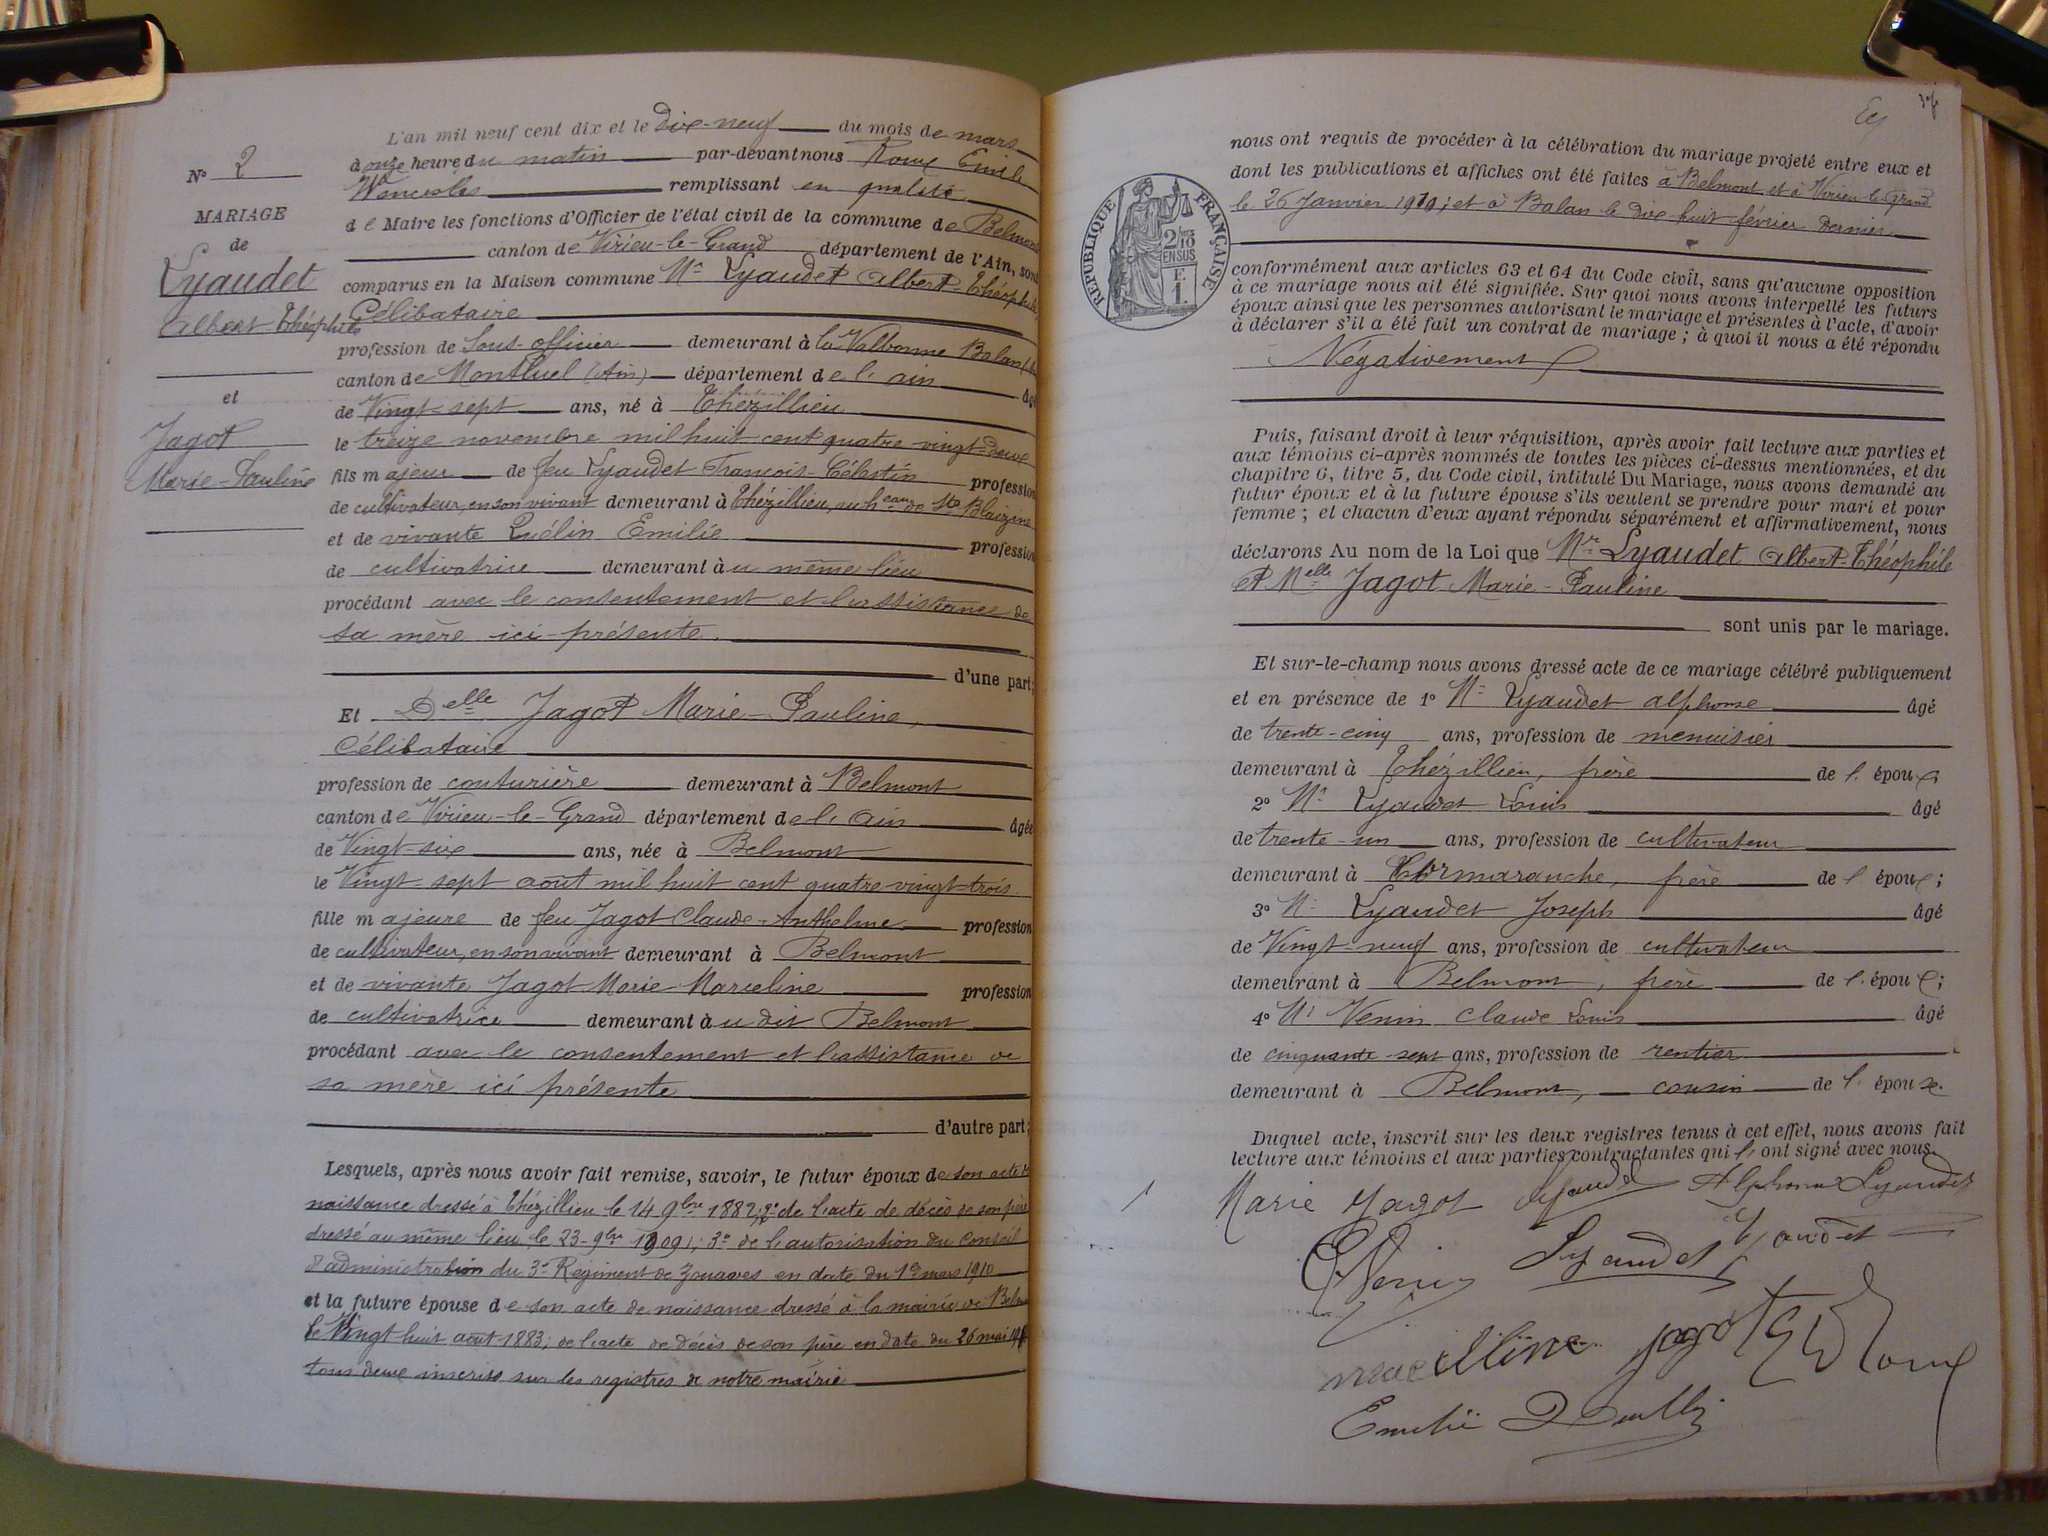 L'an mil neuf cent dix et le dix-neuf du mois de mars
à onze heure du matin par-devant nous Roux Emile
Wenceslas remplissant en qualité
de Maire les fonctions d'Officier de l'état civil de la commune de Belmont
canton de Virieu-le-Grand département de l'Ain, sont
comparus en la Maison commune Mr Lyaudet Albert-Théophile
Célibataire
profession de Sous-officier demeurant à la Valbonne Balan
canton de Montluel (Ain) département de l'ain âgé
de Vingt-sept ans, né à Thézillieu
le treize novembre mil huit cent quatre vingt-deux
fils majeur de feu Lyaudet François-Célestin profession
de cultivateur, en son vivant demeurant à Thézillieu, au heau de Ste Blaizine
et de vivante Emilie profession
de cultivatrice demeurant au même lieu
procédant avec le consentement et l'assistance de
sa mère ici présente.
d'une part;
Et Delle Jagot Marie-Pauline,
Célibataire
profession de couturière demeurant à Belmont
canton de Virieu-le-Grand département de l'Ain âgée
de Vingt-six ans, née à Belmont
le Vingt sept août mil huit cent quatre vingt-trois
fille majeure de feu Jagot Claude-Anthelme profession
de cultivateur, en son vivant demeurant à Belmont
et de vivante Jagot Marie Marceline profession
de cultivatrice demeurant au dit Belmont
procédant avec le consentement et l'assistance de
sa mère ici présente
d'autre part;
Lesquels, après nous avoir fait remise, savoir, le futur époux de son acte de
naissance dressé à Thézillieu le 14 9bre 1882; 2° de l'acte de décès de son père
dressé au même lieu, le 23 9bre 1909; 3° de l'autorisation du Conseil
d'administration du 3e Régiment de Zouaves en date du mars 1910
et la future épouse de son acte de naissance dressé à la mairie de Belmont
le Vingt huit août 1883; de l'acte de décès de son père en date du 26 mai
tous deux inscrits sur les registres de notre mairie
N° 2
MARIAGE
de
Lyaudet
Albert Théophile
et
Jagot
Marie-Pauline
nous ont requis de procéder à la célébration du mariage projeté entre eux et
dont les publications et affiches ont été faites à Belmont et à Virieu-le-Grand
le 26 Janvier 1910; et à Balan le dix huit février dernier
RÉPUBLIQUE FRANÇAISE
2/10
EN SUS
F.
1.
conformément aux articles 63 et 64 du Code civil, sans qu'aucune opposition
à ce mariage nous ait été signifiée. Sur quoi nous avons interpellé les futurs
époux ainsi que les personnes autorisant le mariage et présentes à l'acte, d'avoir
à déclarer s'il a été fait un contrat de mariage; à quoi il nous a été répondu
Négativement
Puis, faisant droit à leur réquisition, après avoir fait lecture aux parties et
aux témoins ci-après nommés de toutes les pièces ci-dessus mentionnées, et du
chapitre 6, titre 5, du Code civil, intitulé Du Mariage, nous avons demandé au
futur époux et à la future épouse s'ils veulent se prendre pour mari et pour
femme; et chacun d'eux ayant répondu séparément et affirmativement, nous
déclarons Au nom de la Loi que Mr Lyaudet Albert-Théophile
et Melle Jagot Marie-Pauline
sont unis par le mariage.
Et sur-le-champ nous avons dressé acte de ce mariage célébré publiquement
et en présence de 1° Mr Lyaudet Alphonse âgé
de trente-cinq ans, profession de menuisier
demeurant à Thézillieu, frère de l'époux;
2° Mr Lyaudet Louis âgé
de trente-un ans, profession de cultivateur
demeurant à Cormaranche, frère de l'époux;
3° Mr Lyaudet Joseph âgé
de Vingt-neuf ans, profession de cultivateur
demeurant à Belmont, frère de l'époux;
4° Mr Venin Claude Louis âgé
de cinquante-sept ans, profession de rentier
demeurant à Belmont, cousin de l'épouse.
Duquel acte, inscrit sur les deux registres tenus à cet effet, nous avons fait
lecture aux témoins et aux parties contractantes qui l'ont signé avec nous.
Marie Jagot Lyaudet Alphonse Lyaudet
Lyaudet Lyaudet
Venin
marcelline jagot E W Roux
Emilie